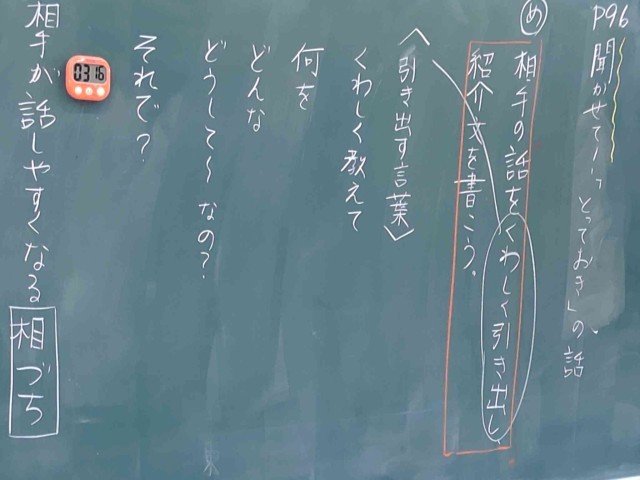 P96
聞かせて！「とっておき」の話
め
相手の話をくわしく引き出し、
紹介文を書こう。
〈引き出す言葉〉
くわしく教えて
何を
どんな
どうして～なの？
それで？
03 16
相手が話しやすくなる相づち